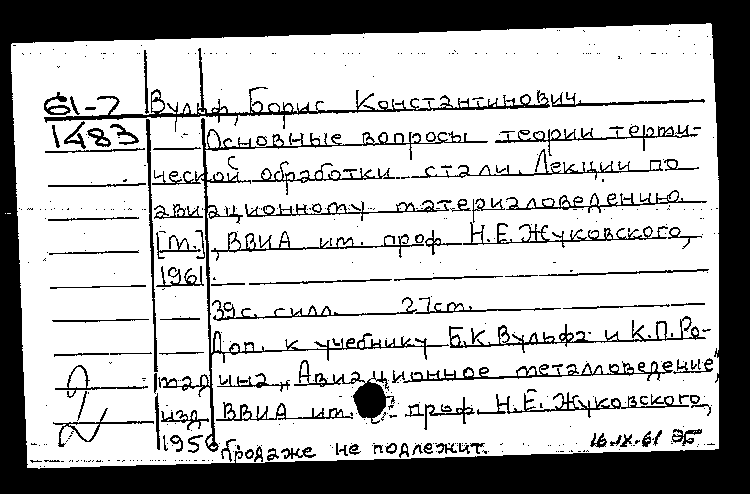 61-7 Вульф, Борис Константинович.
1483 Основные вопросы теории терми-
ческой обработки стали. Лекции по
авиационному материаловедению.
[М.], ВВИА им. проф. Н.Е. Жуковского,
1961.
39 с. с илл. 27 см.
Доп. к учебнику Б.К. Вульфа и К.П. Ро-
мадина „Авиационное металловедение",
изд. ВВИА им. проф. Н.Е. Жуковского,
1956
Продаже не подлежит.
16.IX.61 ЭБ